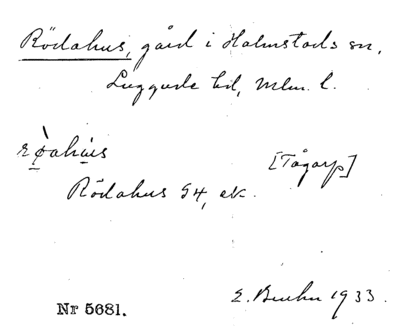 Rödahus, gård i Halmstads sn,
Luggude hd, Mlm. l.
rø̀ahùs [Tågarp]
Rödahus S4, ek.
E. Bruhn 1933.
Nr 5681.